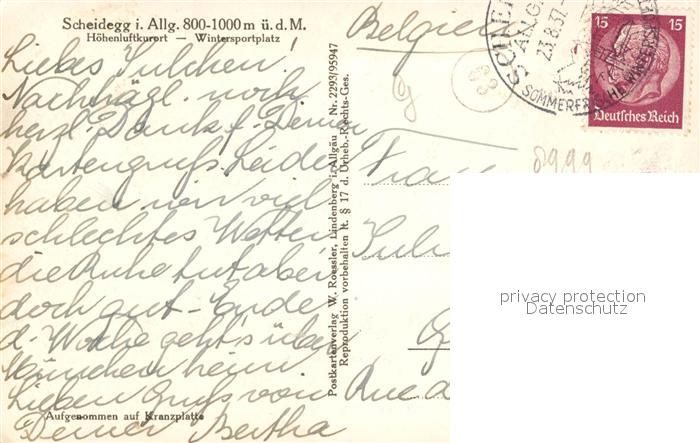 Scheidegg i. Allg. 800-1000 m ü. d. M.
Höhenluftkurort — Wintersportplatz
Liebes Julchen!
Nachträgl. noch
herzl. Dank f. Deinen
Kartengruß. Leider
haben wir viel
schlechtes Wetter,
die Ruhe tut aber
doch gut - Ende
d. Woche geht's über
München heim.
Lieben Gruß von
Deiner Bertha
Aufgenommen auf Kranzplatte
Postkartenverlag W. Roessler, Lindenberg i. Allgäu Nr. 2293/95947
Reproduktion vorbehalten lt. § 17 d. Urheb.-Rechts-Ges.
Belgien
23.8.37
SOMMERFRISCHE
63
15 15
Deutsches Reich
8999
Frau
Rue d
privacy protection
Datenschutz